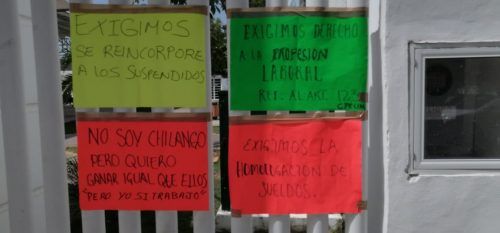 EXIGIMOS
SE REINCORPORE
A LOS SUSPENDIDOS
EXIGIMOS DERECHO
A LA PROFESION
LABORAL
REF. AL ART. 123
NO SOY CHILANGO
PERO QUIERO
GANAR IGUAL QUE ELLOS
"PERO YO SI TRABAJO"
EXIGIMOS LA
HOMOLOGACION DE
SUELDOS.